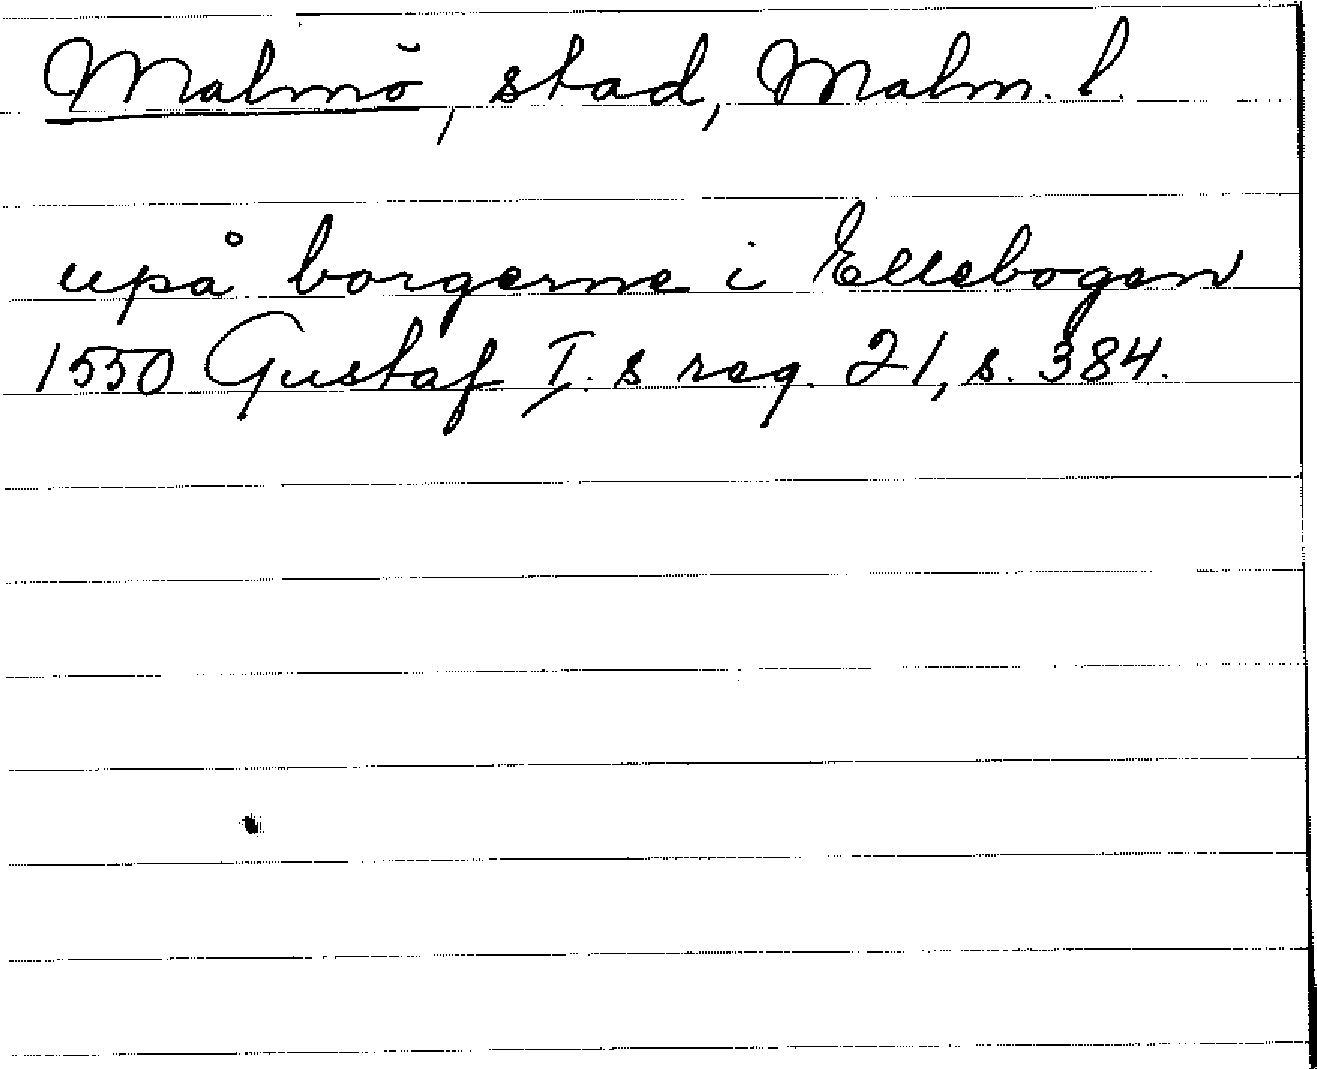 Malmö, stad, Malm. l.
upå borgerne i Ellebogen
1550 Gustaf I:s reg. 21, s. 384.